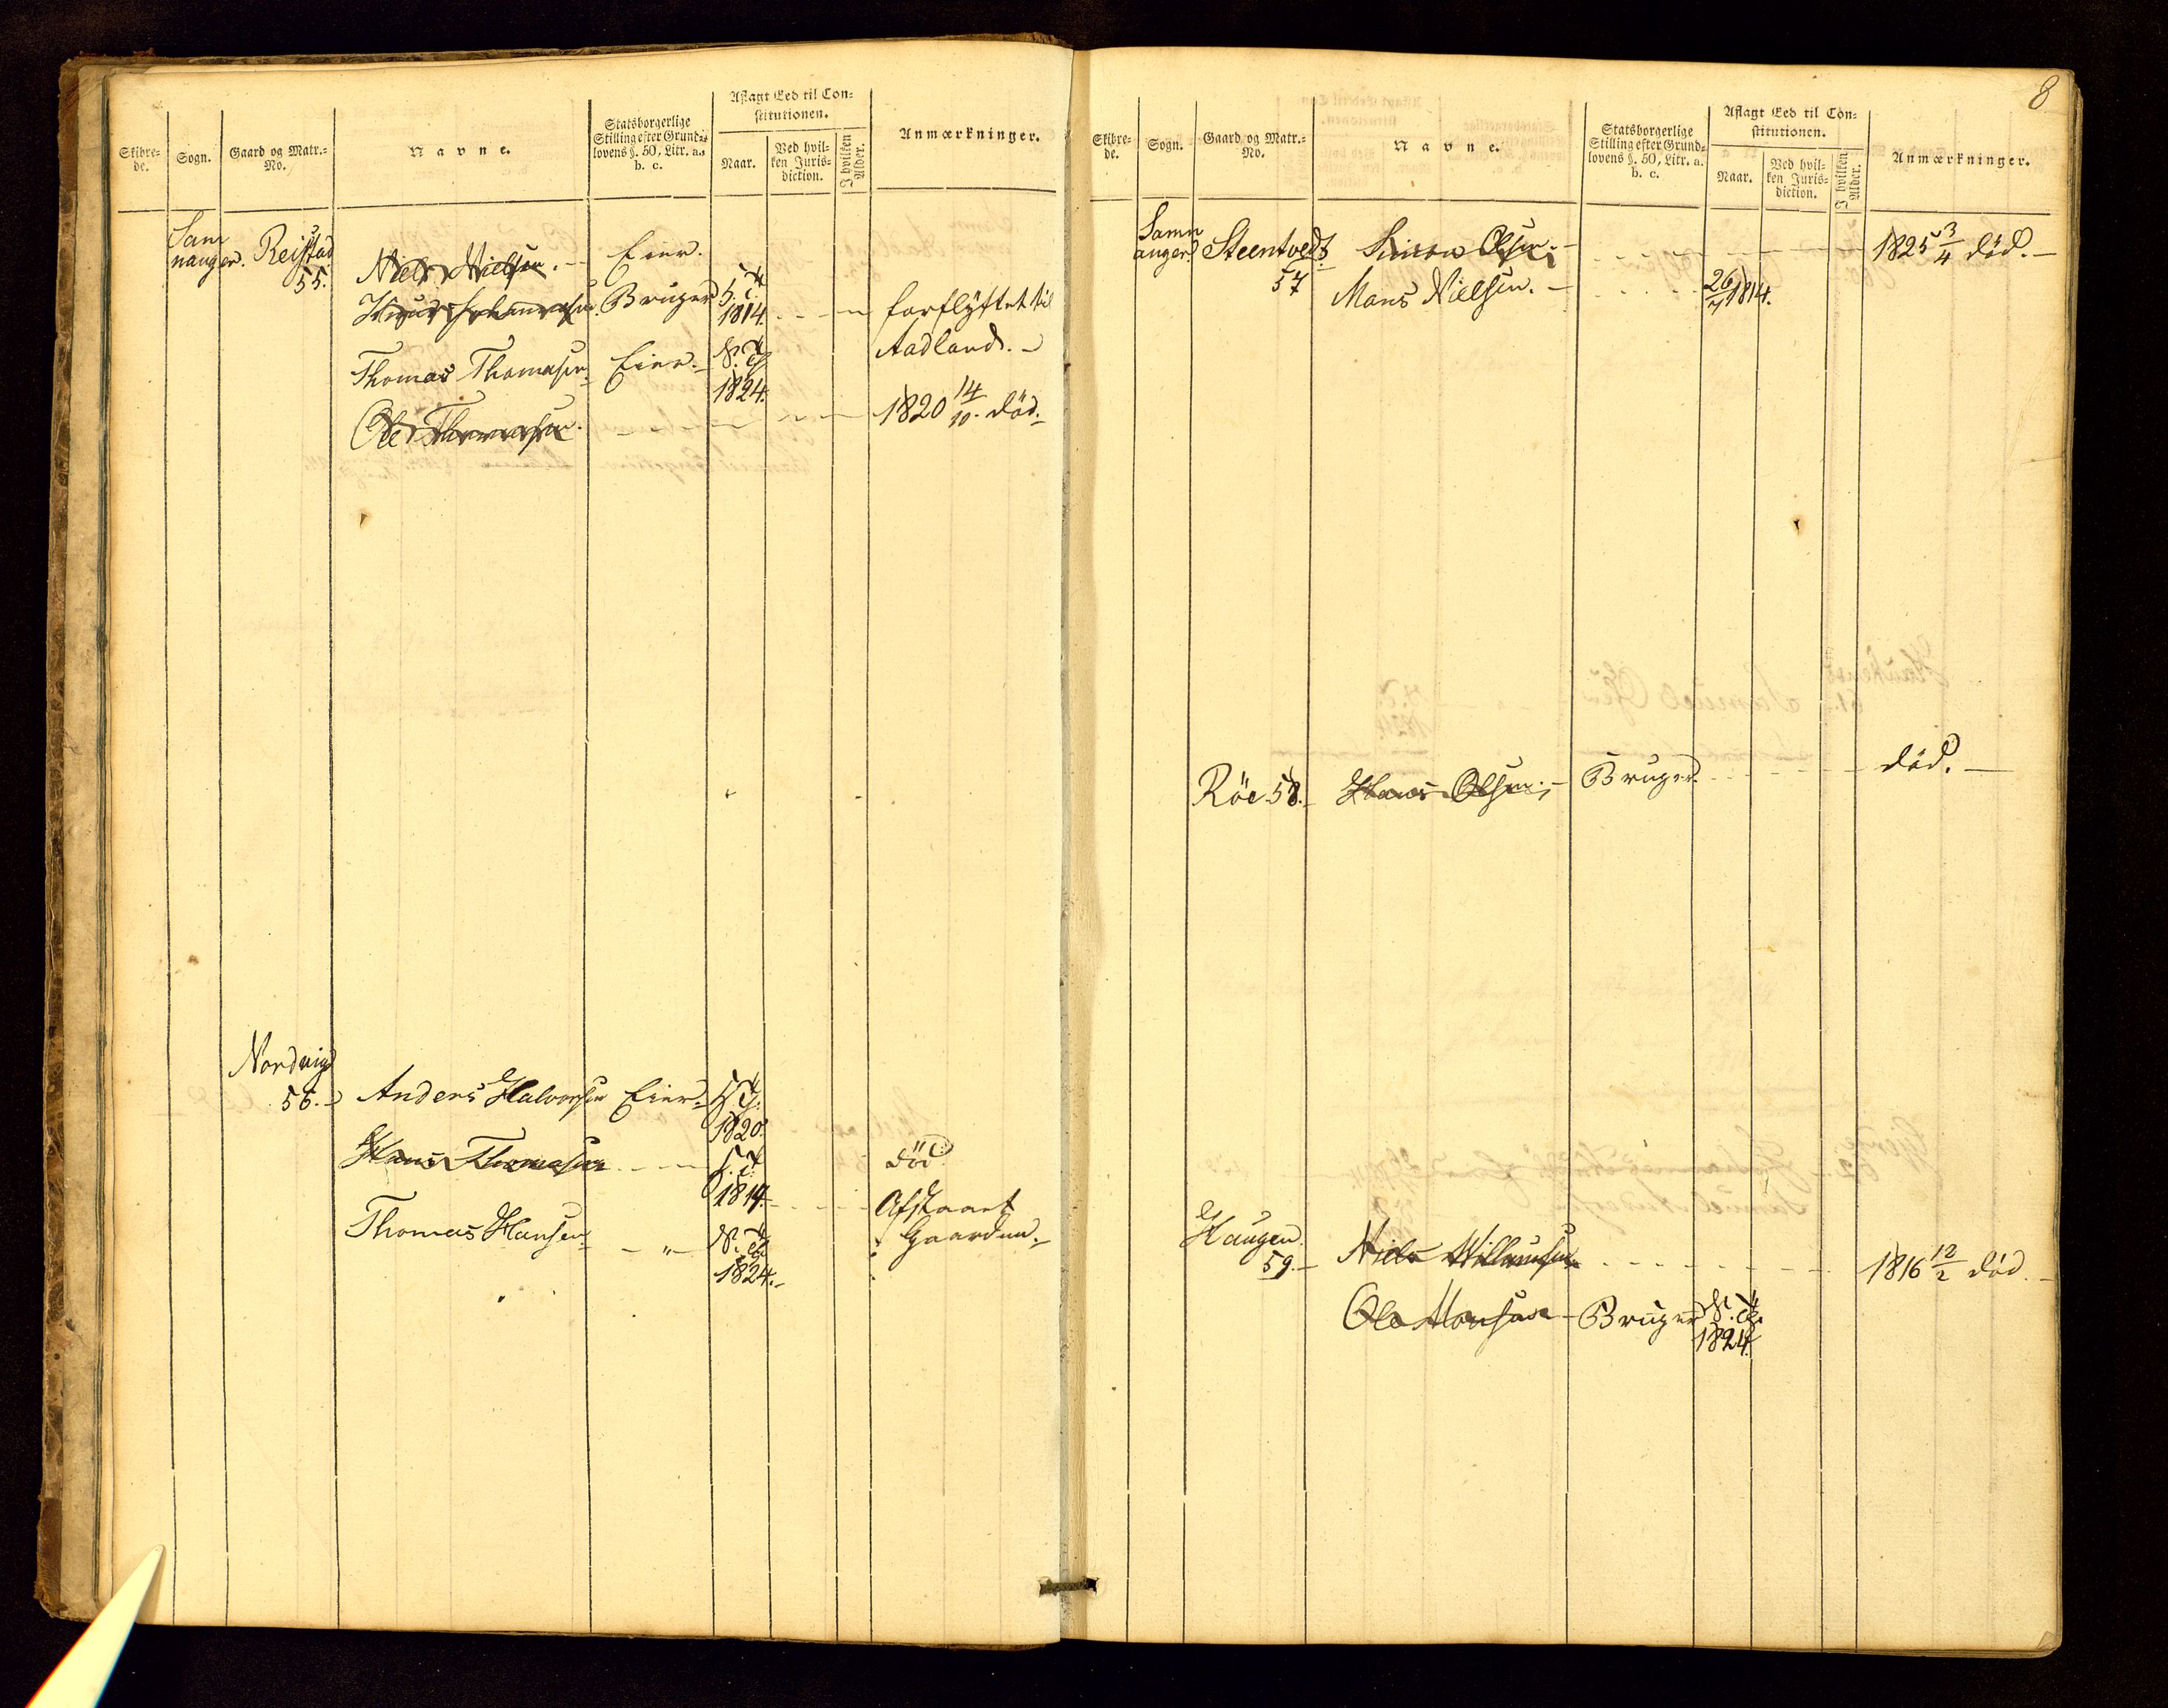 Skibre-
de.
Sogn.
Gaard og Matr.-
No.
Navne.
Statsborgerlige
Stilling efter Grund-
lovens §. 50, Litr. a.,
b. c.
Aflagt Eed til Con-
stitutionen.
Naar.
Ved hvil-
ken Juris-
diction.
I hvilken
Alder.
Anmærkninger.
Sam
nanger.
Reistad
55.
Niels Nielsen. Eier.
Knud Johannesen. Bruger
1814. forflyttet til
Aadland.
Thomas Thomasen Eier.
1824.
Ole Thomasen. 1820 14/10. död.
Nordvig
56. Anders Halvorsen Eier.
1820.
Hans Thomasen död.
1814.
Thomas Hansen Afstaaet
Gaarden.
1824.
8
Skibre-
de.
Sogn.
Gaard og Matr.-
No.
Navne.
Statsborgerlige
Stilling efter Grund-
lovens §. 50, Litr. a.
b. c.
Aflagt Eed til Con-
stitutionen.
Naar.
Ved hvil-
ken Juris-
diction.
I hvilken
Alder.
Anmærkninger.
Samn
anger.
Steentvedt
57
Simon Olsen. 1825 3/4 död.
Mons Nielsen. 26/7 1814.
Röe 58. Hans Olsen. Bruger. död.
Haugen
59. Niels Willumsen 1816 12/2 död.
Ole Monsen Bruger
1824.